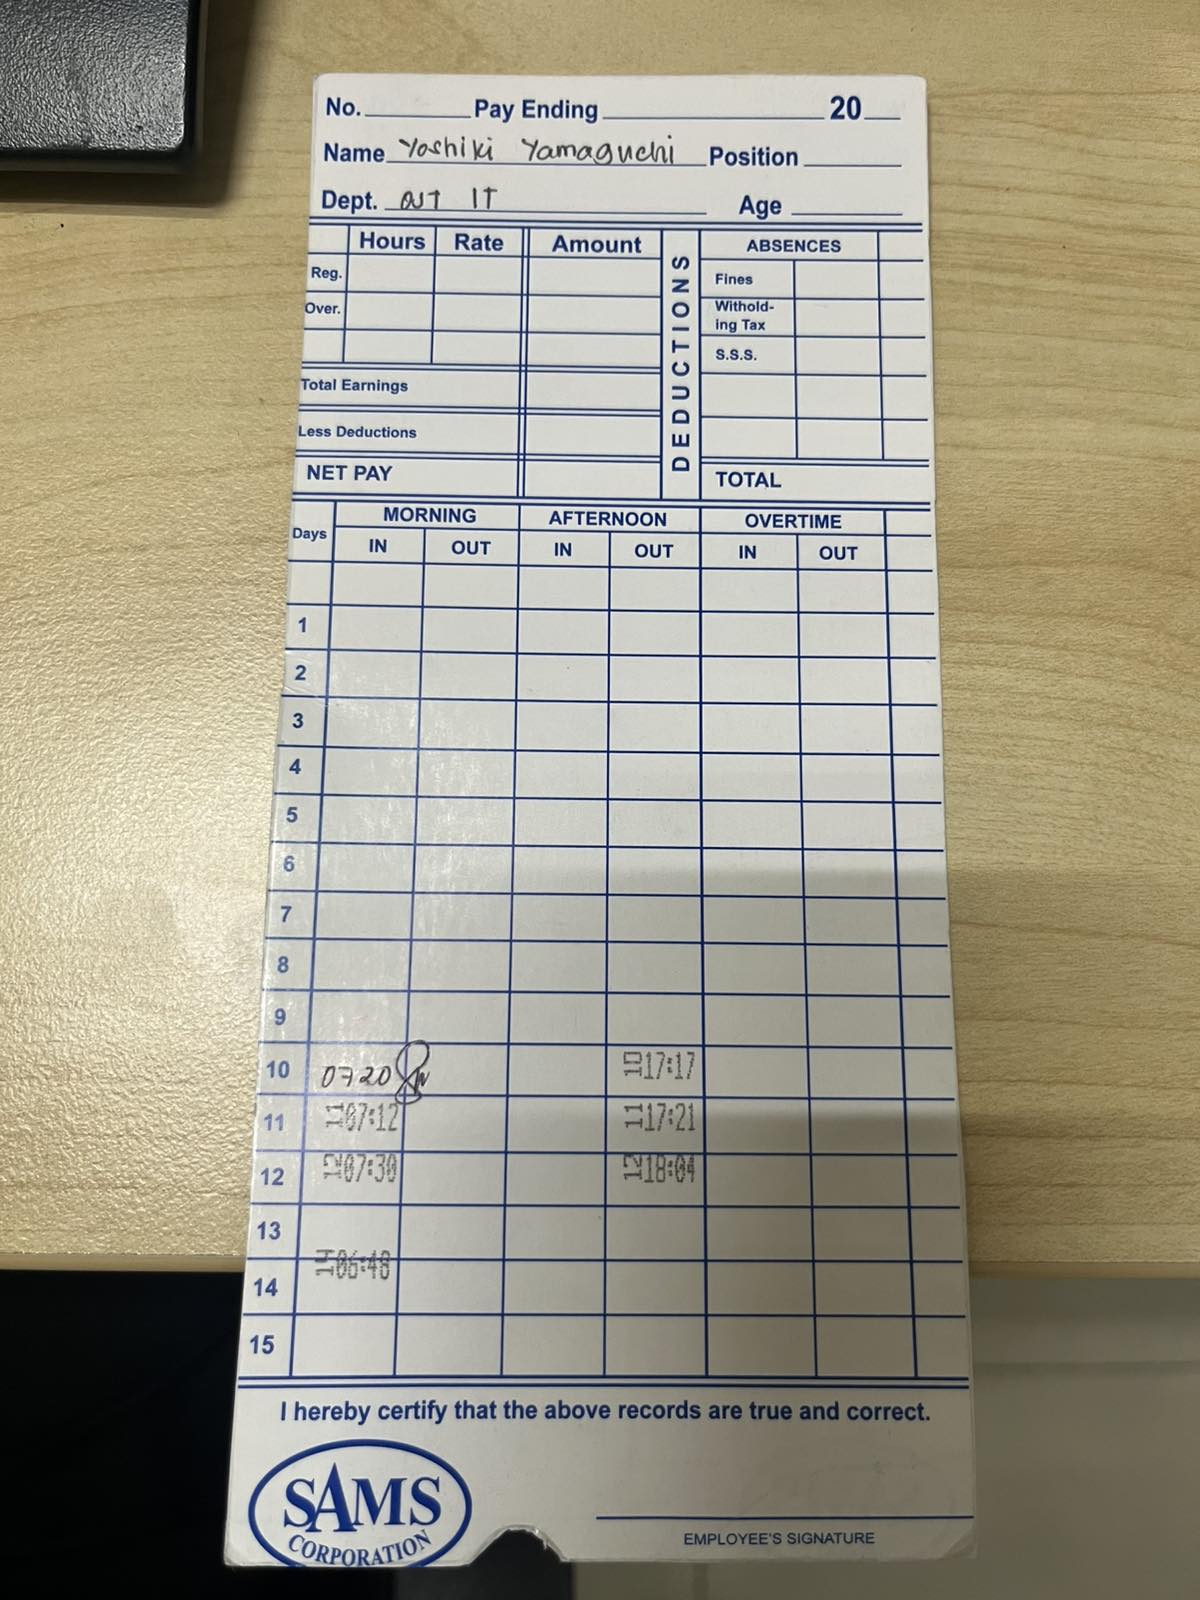 No. Pay Ending 20
Name Yoshiki Yamaguchi Position
Dept. OJT IT Age
Hours Rate Amount
Reg.
Over.
Total Earnings
Less Deductions
NET PAY
DEDUCTIONS
ABSENCES
Fines
Withold-
ing Tax
S.S.S.
TOTAL
Days MORNING AFTERNOON OVERTIME
IN OUT IN OUT IN OUT
1
2
3
4
5
6
7
8
9
10 0720 10 17:17
11 11 07:12 11 17:21
12 12 07:30 12 18:04
13
14 14 06:48
15
I hereby certify that the above records are true and correct.
SAMS
CORPORATION
EMPLOYEE'S SIGNATURE